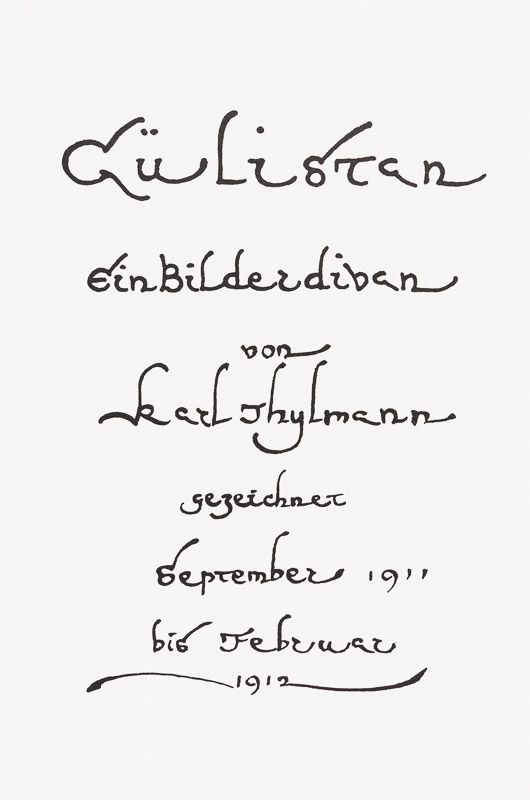 Gülistan
Ein Bilderdivan
von
Karl Thylmann
gezeichnet
September 1911
bis Februar
1912